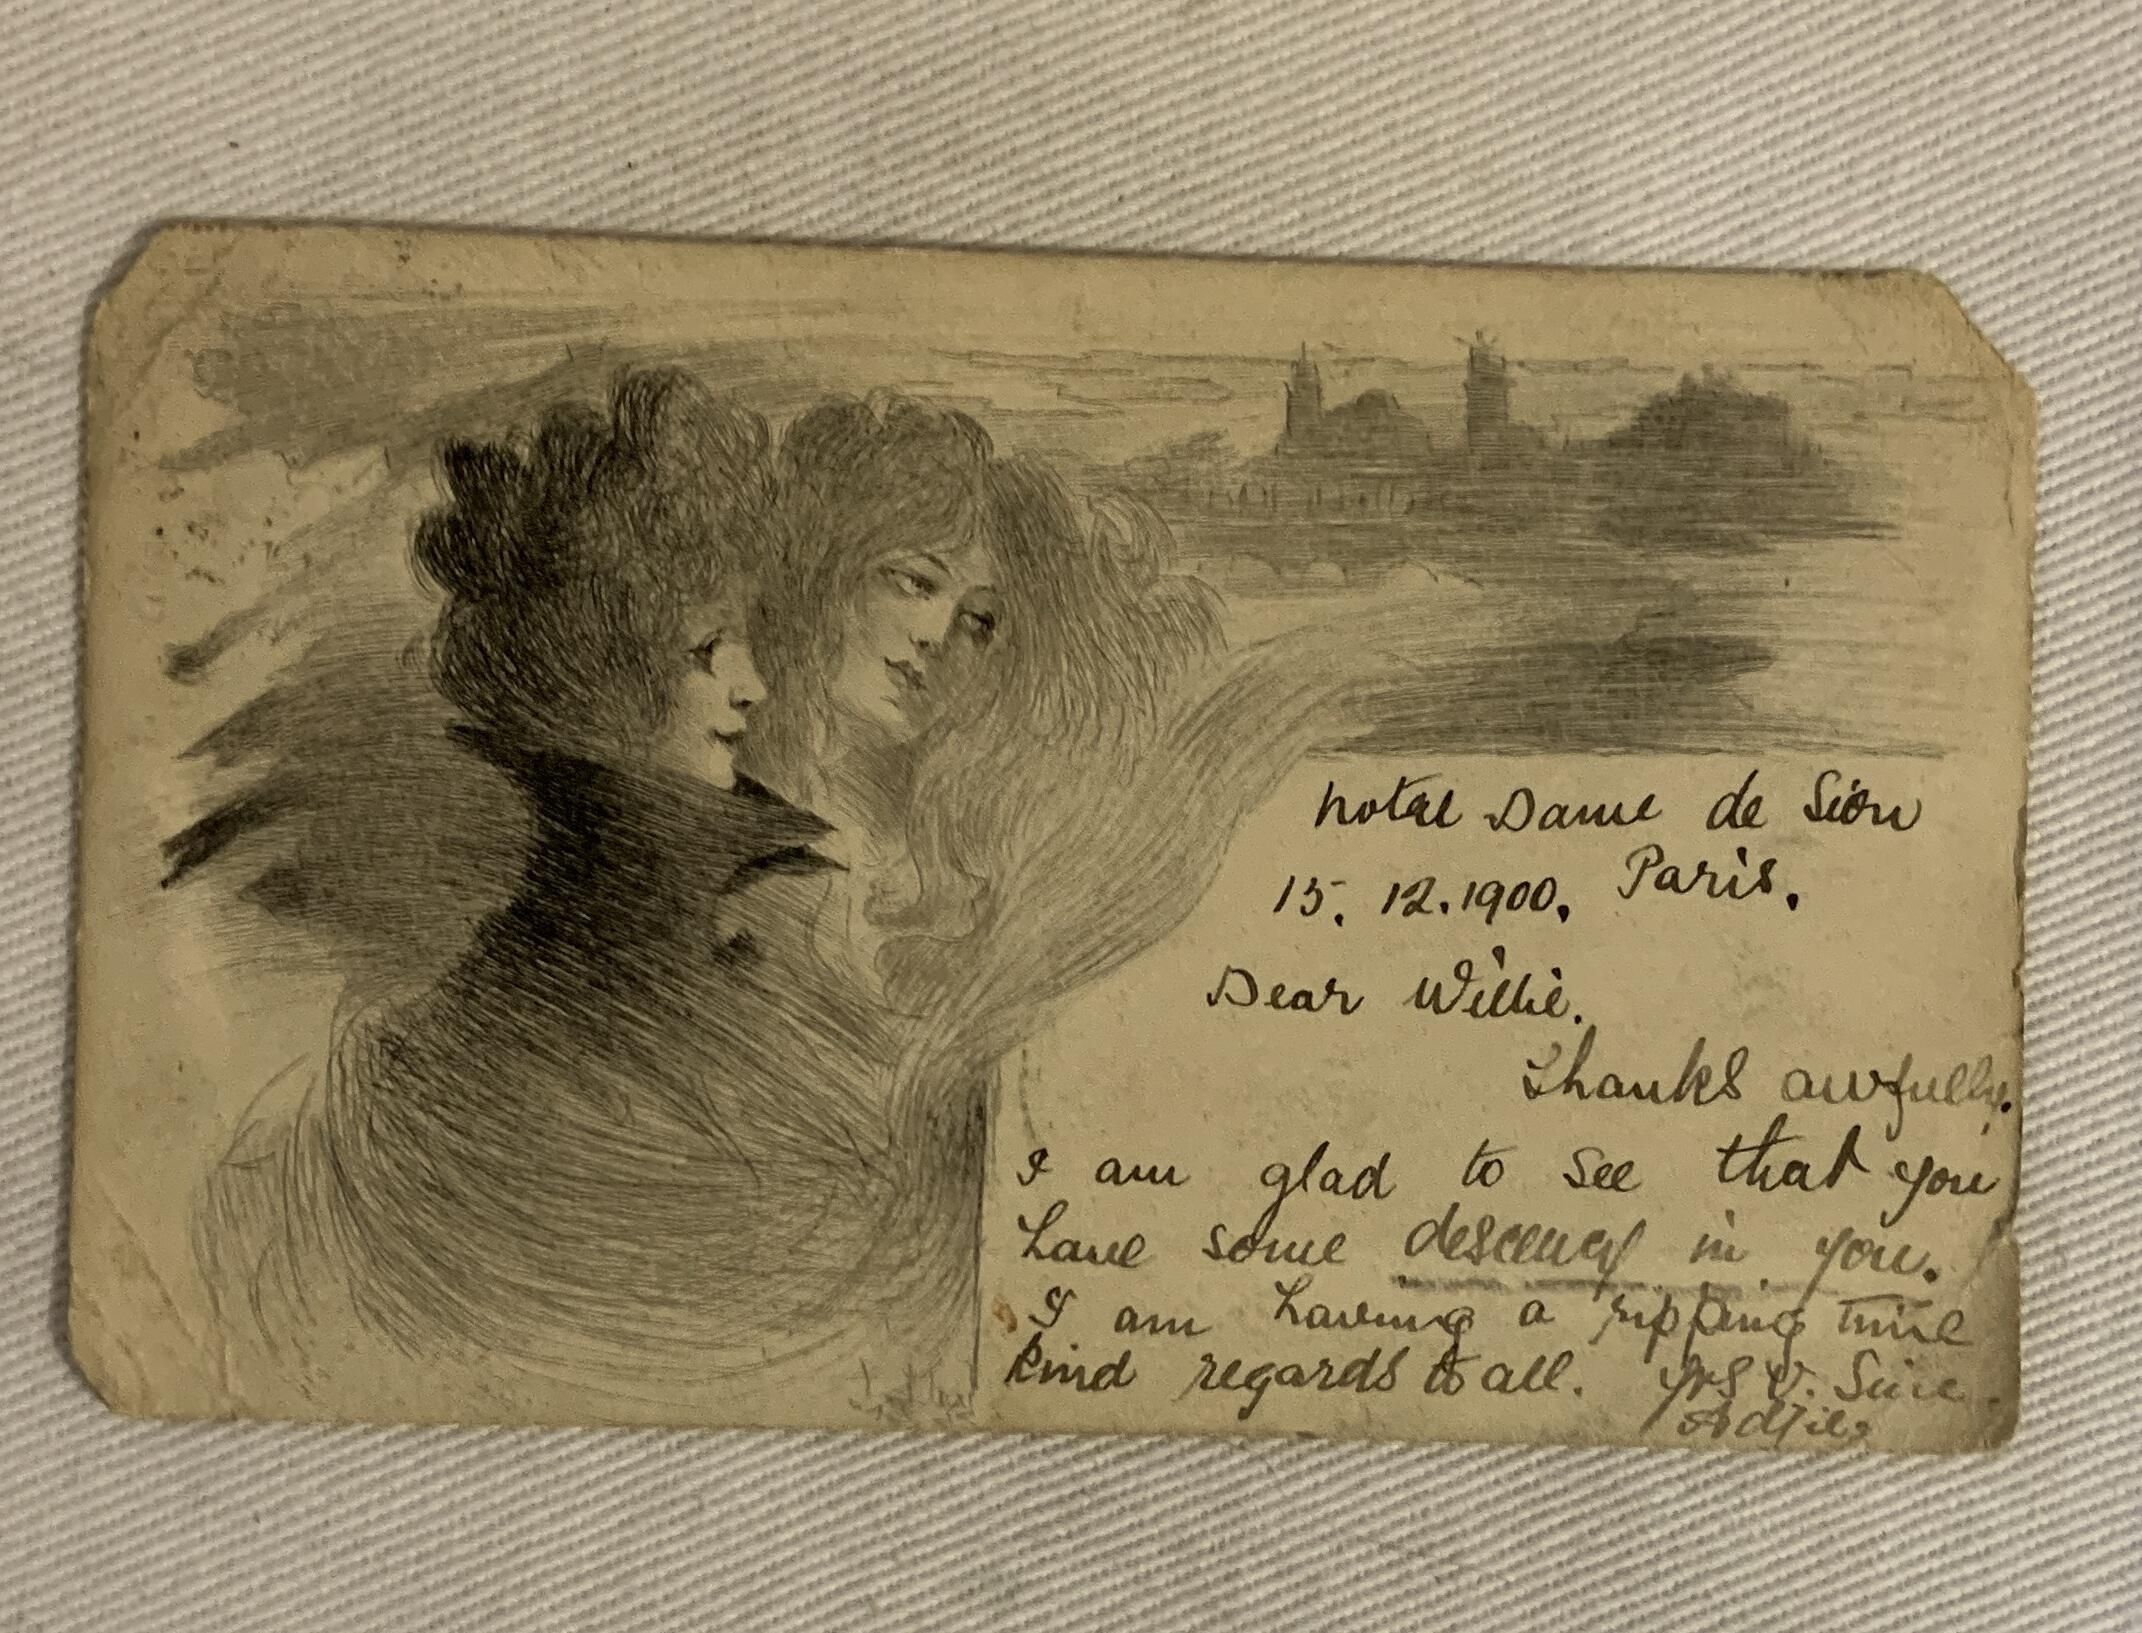 Notre Dame de Sion
15. 12. 1900. Paris.
Dear Willie.
Thanks awfully.
I am glad to see that you
have some descency in you.
I am having a ripping time
kind regards to all. Yrs V. Sinc